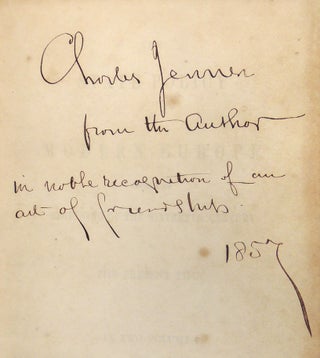 Charles Jenner
from the Author
in noble recognition of an
act of friendship.
1857